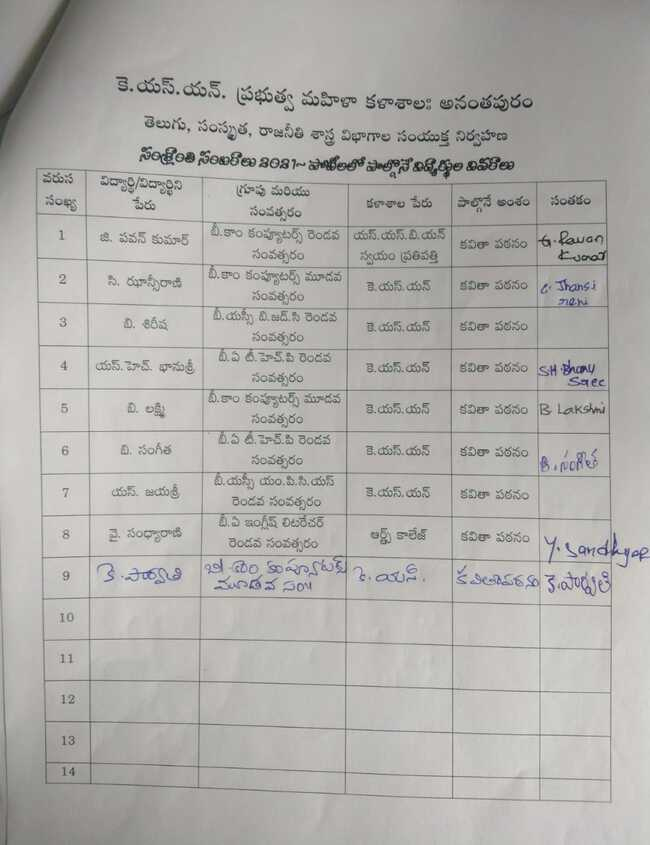 కె.యస్.యన్. ప్రభుత్వ మహిళా కళాశాల: అనంతపురం
తెలుగు, సంస్కృత, రాజనీతి శాస్త్ర విభాగాల సంయుక్త నిర్వహణ
సంక్రాంతి సంబరాలు 2021~ పోటీలలో పాల్గొనే విద్యార్థుల వివరాలు
వరుస సంఖ్య విద్యార్థి/విద్యార్థిని పేరు గ్రూపు మరియు సంవత్సరం కళాశాల పేరు పాల్గొనే అంశం సంతకం
1 జి. పవన్ కుమార్ బీ.కాం కంప్యూటర్స్ రెండవ సంవత్సరం యస్.యస్.బి.యన్ స్వయం ప్రతిపత్తి కవితా పఠనం G. Pavan Kumar
2 సి. ఝాన్సీరాణి బీ.కాం కంప్యూటర్స్ మూడవ సంవత్సరం కె.యస్.యన్ కవితా పఠనం C. Jhansi rani
3 బి. శిరీష బీ.యస్సీ బి.జడ్.సి రెండవ సంవత్సరం కె.యస్.యన్ కవితా పఠనం
4 యస్.హెచ్. భానుశ్రీ బీ.ఏ టీ.హెచ్.పి రెండవ సంవత్సరం కె.యస్.యన్ కవితా పఠనం SH Bhanu Sree
5 బి. లక్ష్మి బీ.కాం కంప్యూటర్స్ మూడవ సంవత్సరం కె.యస్.యన్ కవితా పఠనం B Lakshmi
6 బి. సంగీత బీ.ఏ టీ.హెచ్.పి రెండవ సంవత్సరం కె.యస్.యన్ కవితా పఠనం బి. సంగీత
7 యస్. జయశ్రీ బీ.యస్సీ యం.పి.సి.యస్ రెండవ సంవత్సరం కె.యస్.యన్ కవితా పఠనం
8 వై. సంధ్యారాణి బీ.ఏ ఇంగ్లీష్ లిటరేచర్ రెండవ సంవత్సరం ఆర్ట్స్ కాలేజ్ కవితా పఠనం Y. Sandhya
9 కె. పార్వతి బి.కాం కంప్యూటర్స్ మూడవ సం కె. యస్. కవితాపఠనం కె. పార్వతి
10
11
12
13
14